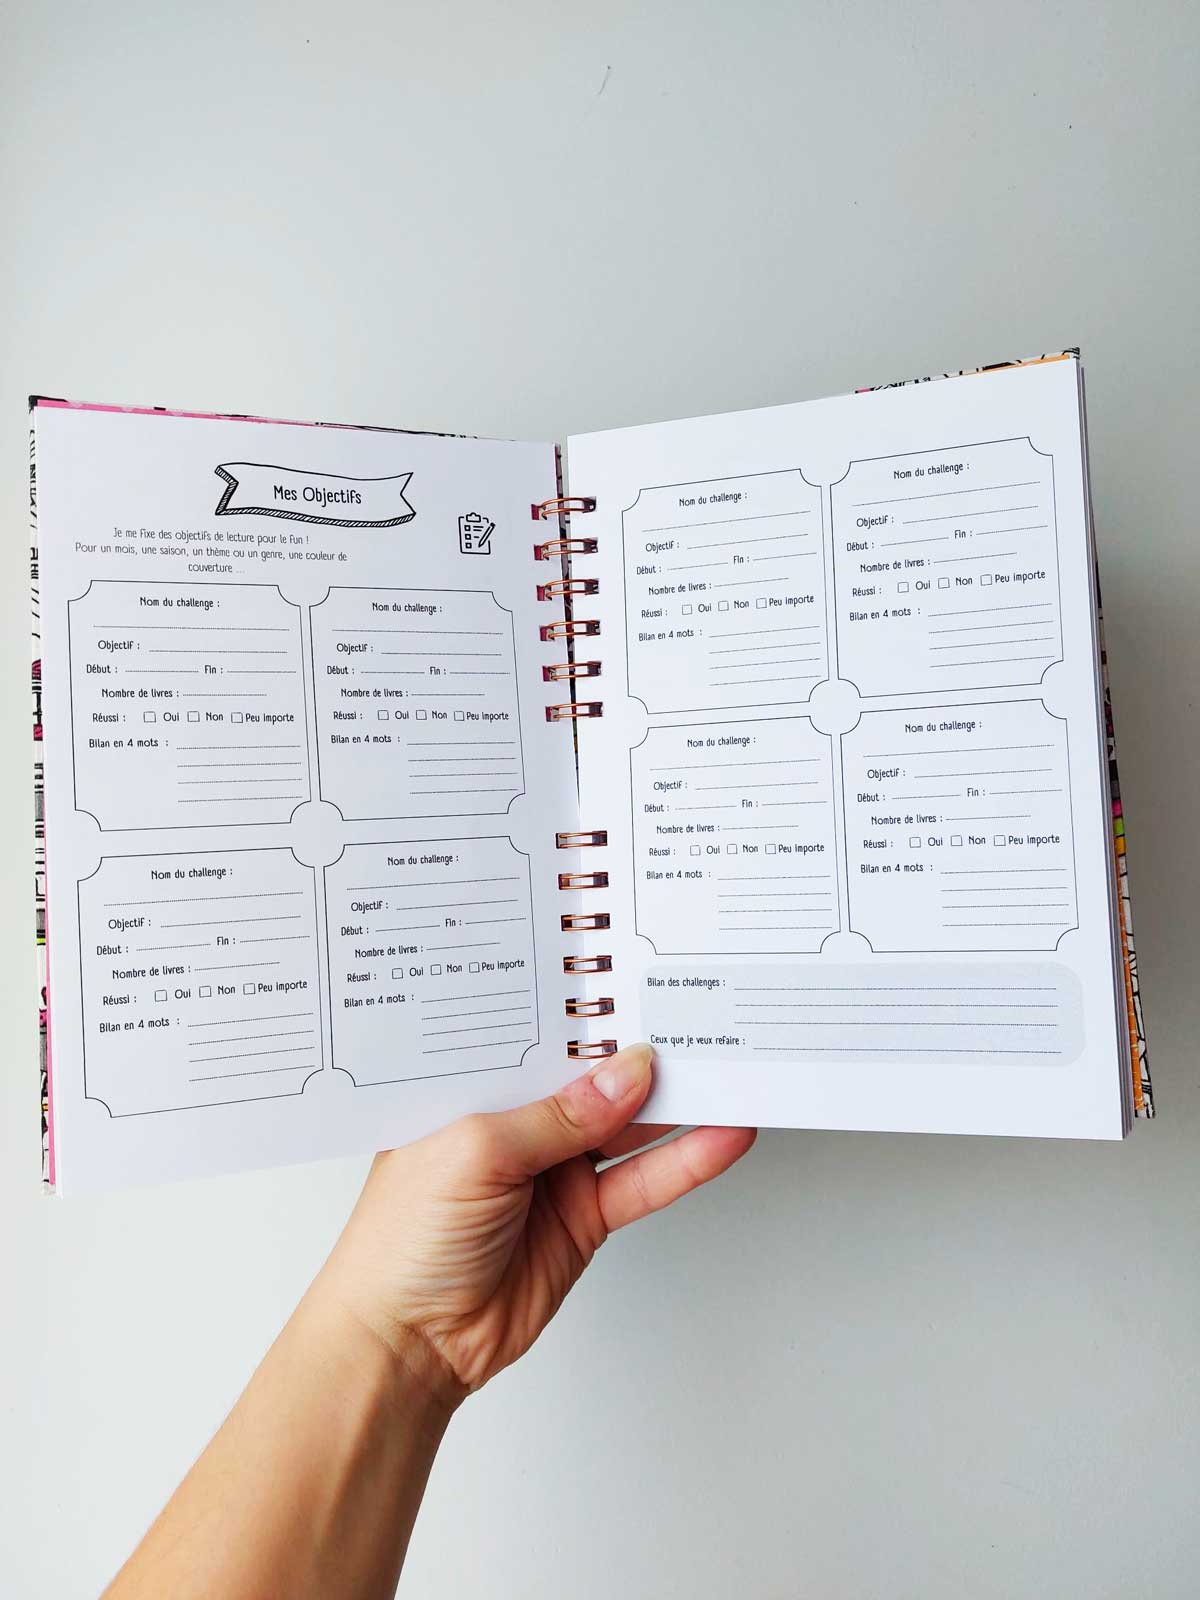 Mes Objectifs
Je me fixe des objectifs de lecture pour le fun !
Pour un mois, une saison, un thème ou un genre, une couleur de
couverture ...
Nom du challenge :
Objectif :
Début : Fin :
Nombre de livres :
Réussi : Oui Non Peu importe
Bilan en 4 mots :
Nom du challenge :
Objectif :
Début : Fin :
Nombre de livres :
Réussi : Oui Non Peu importe
Bilan en 4 mots :
Nom du challenge :
Objectif :
Début : Fin :
Nombre de livres :
Réussi : Oui Non Peu importe
Bilan en 4 mots :
Nom du challenge :
Objectif :
Début : Fin :
Nombre de livres :
Réussi : Oui Non Peu importe
Bilan en 4 mots :
Nom du challenge :
Objectif :
Début : Fin :
Nombre de livres :
Réussi : Oui Non Peu importe
Bilan en 4 mots :
Nom du challenge :
Objectif :
Début : Fin :
Nombre de livres :
Réussi : Oui Non Peu importe
Bilan en 4 mots :
Nom du challenge :
Objectif :
Début : Fin :
Nombre de livres :
Réussi : Oui Non Peu importe
Bilan en 4 mots :
Nom du challenge :
Objectif :
Début : Fin :
Nombre de livres :
Réussi : Oui Non Peu importe
Bilan en 4 mots :
Bilan des challenges :
Ceux que je veux refaire :